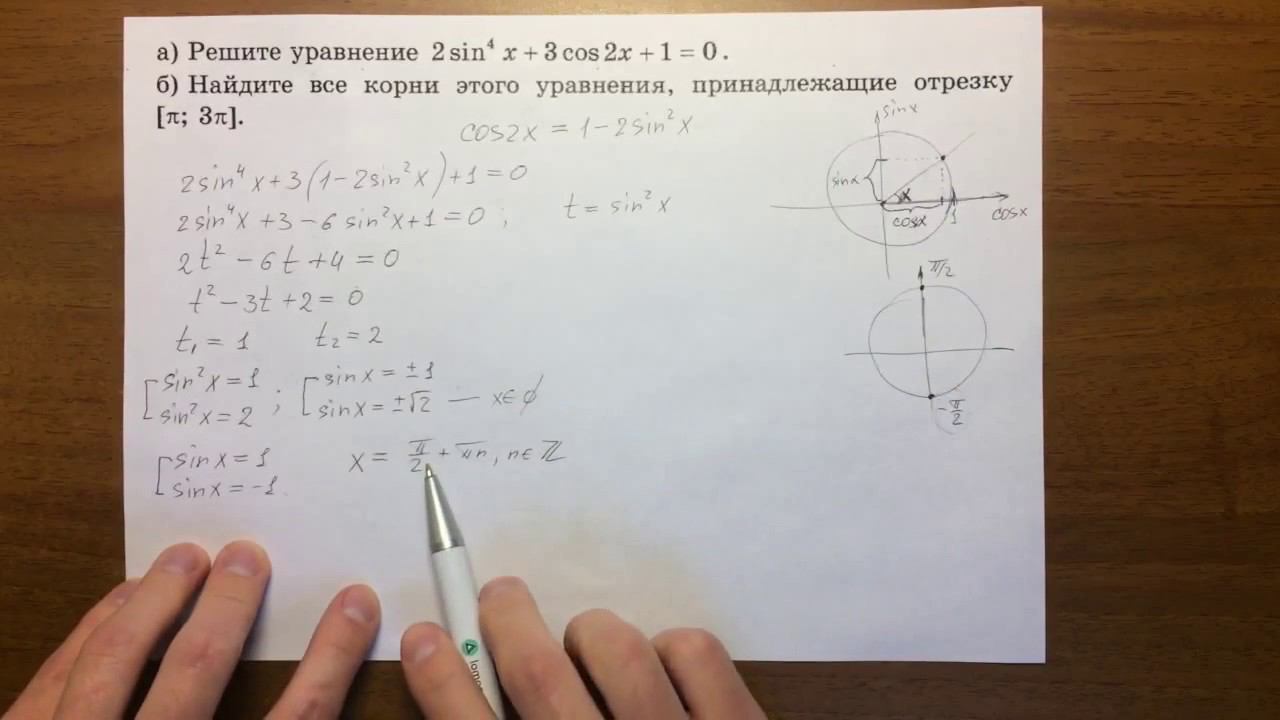 а) Решите уравнение 2 sin⁴ x + 3 cos 2x + 1 = 0.
б) Найдите все корни этого уравнения, принадлежащие отрезку
[π; 3π].
cos2x = 1 - 2sin²x
2sin⁴x + 3(1 - 2sin²x) + 1 = 0
2sin⁴x + 3 - 6 sin²x + 1 = 0 ;
t = sin²x
2t² - 6t + 4 = 0
t² - 3t + 2 = 0
t₁ = 1 t₂ = 2
[sin²x = 1
sin²x = 2 ;
[sinx = ±1
sinx = ±√2 — x∈∅
[sinx = 1
sinx = -1
x = π/2 + πn, n∈ℤ
sinx
sinx
x
cosx
1
cosx
π/2
-π/2